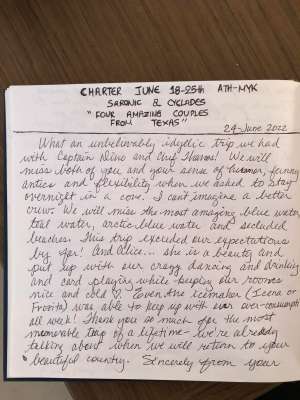 CHARTER JUNE 18-25th ATH-MYK
SARONIC & CYCLADES
"FOUR AMAZING COUPLES
FROM TEXAS"
24-June 2022
What an unbelievably idyllic trip we had
with Captain Nino and Chef Thanos! We will
miss both of you and your sense of humor, funny
antics and flexibility when we asked to stay
overnight in a cove. I can't imagine a better
crew. We will miss the most amazing blue water,
teal water, arctic blue water and secluded
beaches. This trip exceeded our expectations
by far! And Alice... she is a beauty and
put up with our crazy dancing and drinking
and card playing while keeping our rooms
nice and cold ♡. Even the icemaker (Icena or
Frosita) was able to keep up with our over-consumption
all week! Thank you so much for the most
memorable trip of a lifetime - we're already
talking about when we will return to your
beautiful country. Sincerely from your